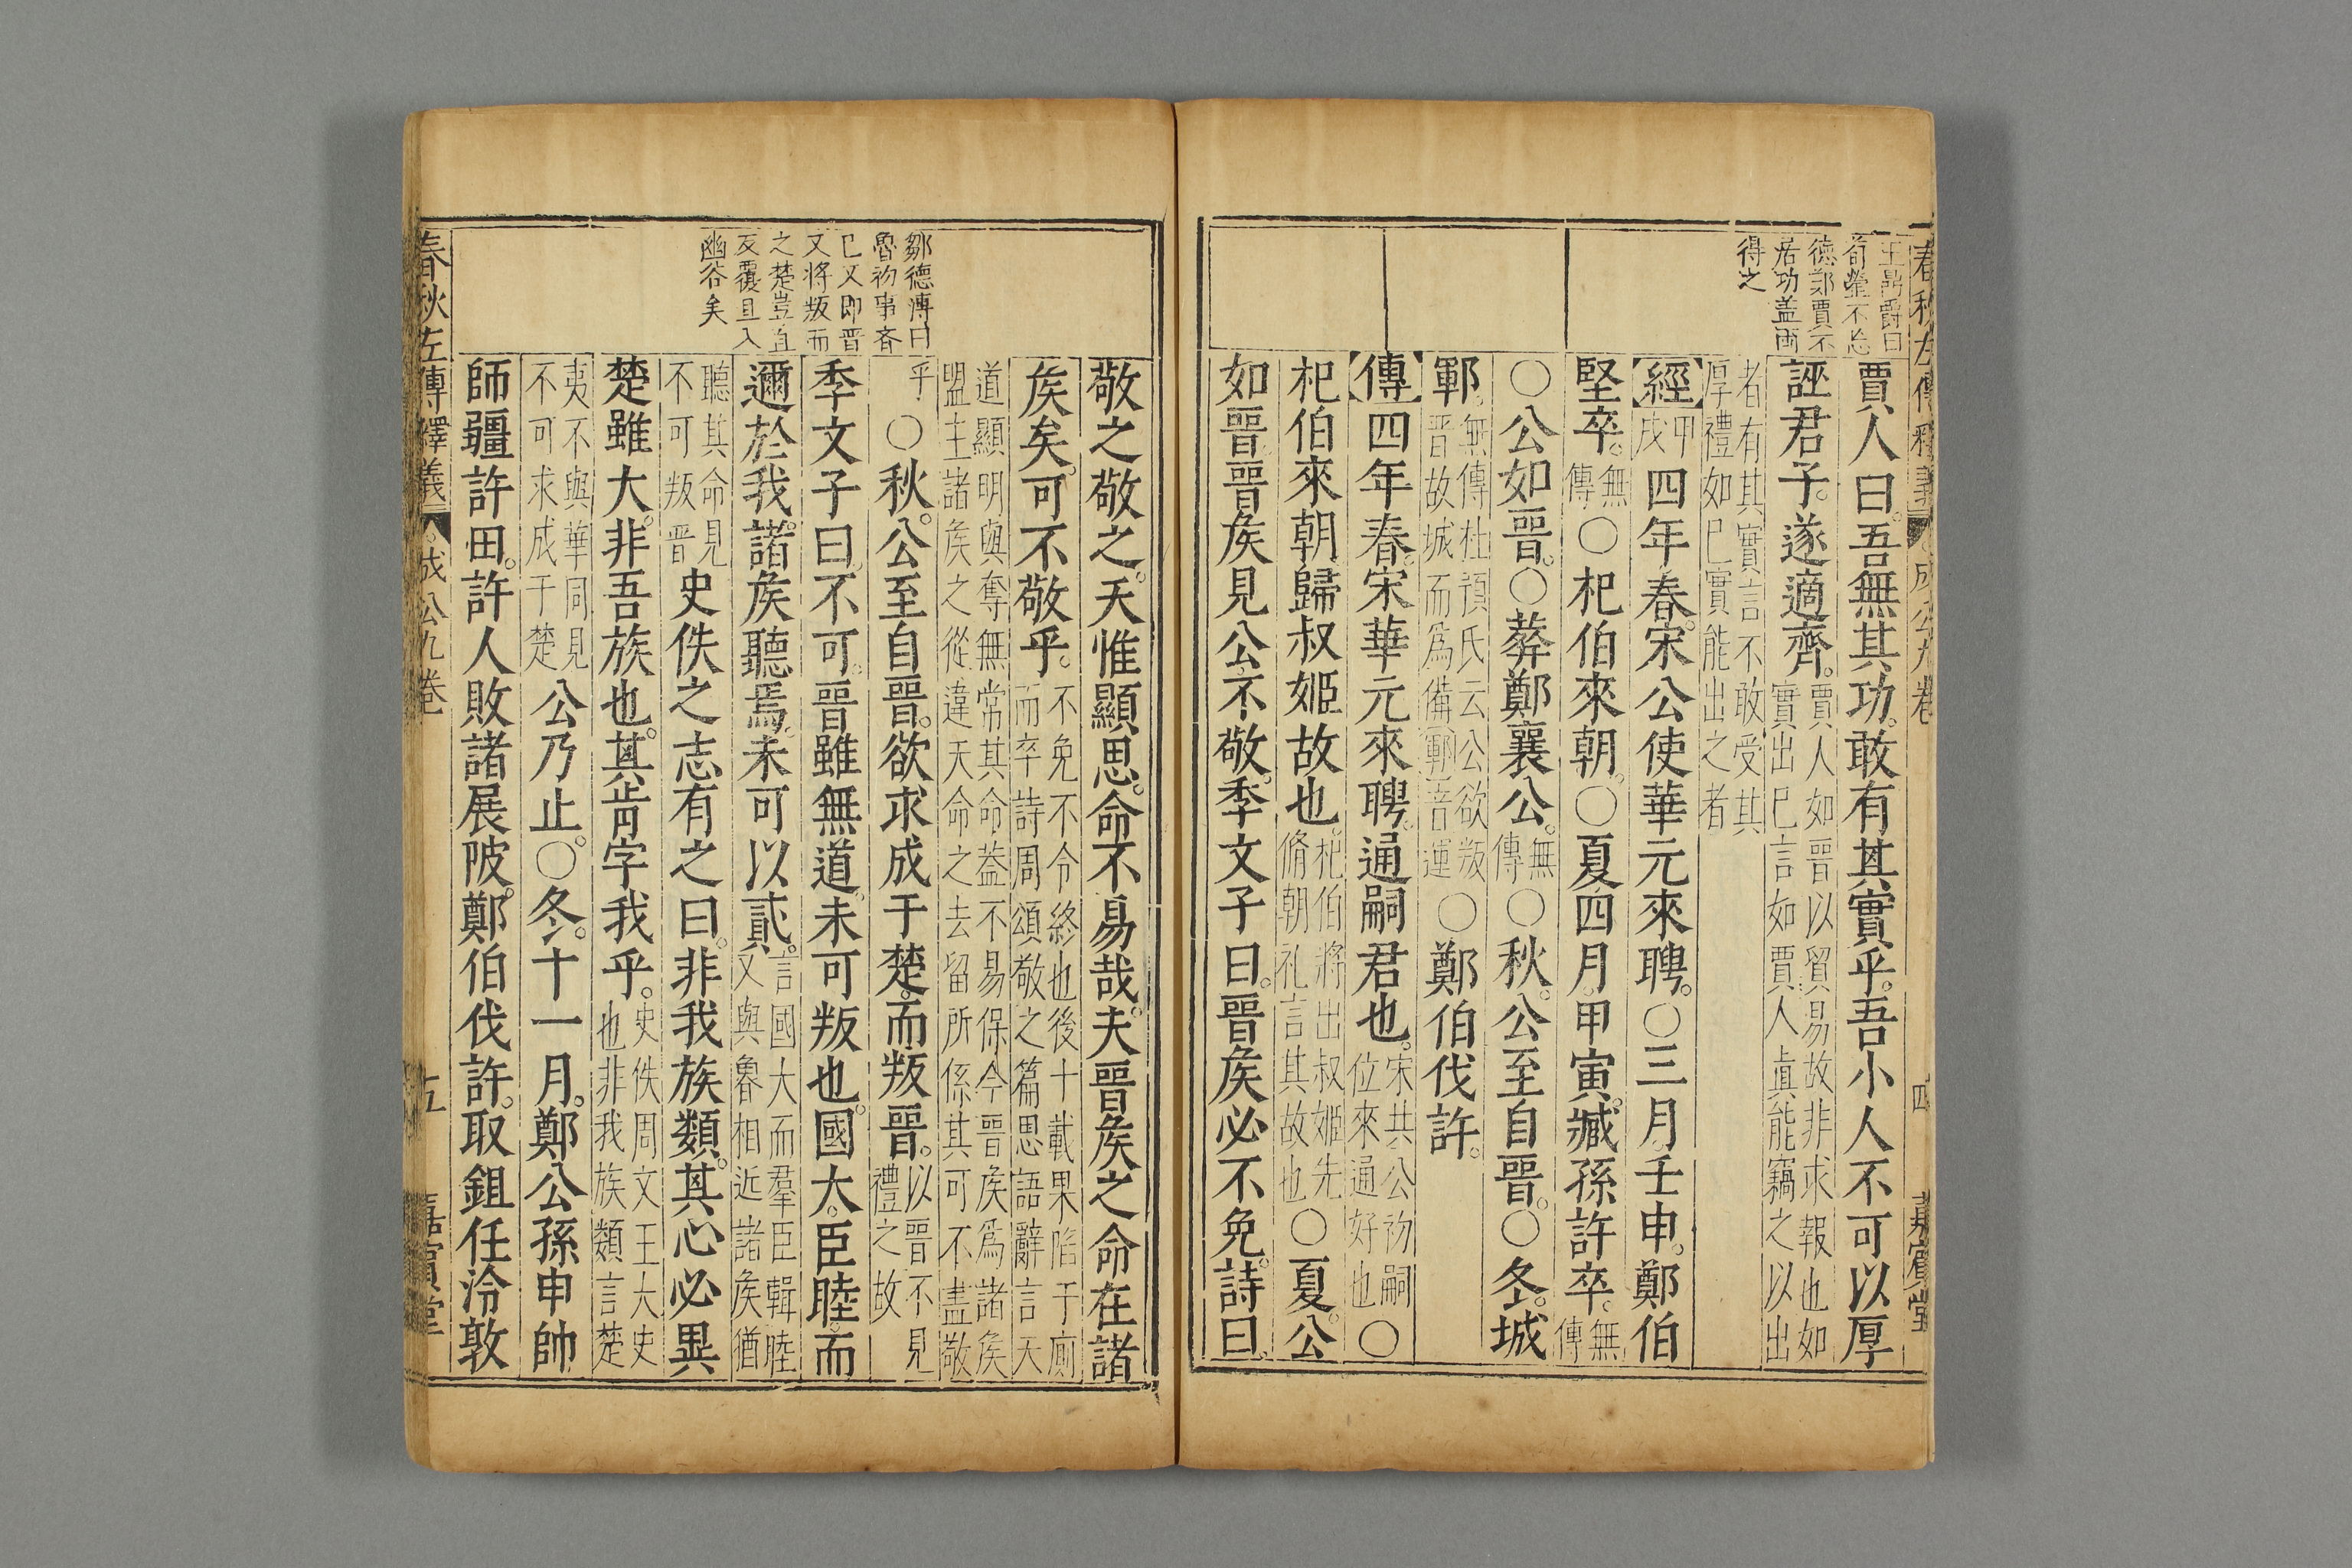 春秋左傳釋義 成公九卷 四 嘉賓堂
王鼎爵曰
荀罃不忘
德鄭賈不
居功盖兩
得之
賈人曰。吾無其功。敢有其實乎。吾小人不可以厚
誣君子。遂適齊。賈人如晉以貿易故非求報也如
實出巳言如賈人眞能竊之以出
者有其實言不敢受其
厚禮如巳實能出之者
經 甲戌 四年春。宋公使華元來聘。○三月。壬申。鄭伯
堅卒。無傳 ○杞伯來朝。○夏四月。甲寅。臧孫許卒。無傳
○公如晉。○葬鄭襄公。無傳 ○秋。公至自晉。○冬。城
鄆。無傳杜預氏云公欲叛
晉故城而爲備鄆音運 ○鄭伯伐許。
傳 四年春。宋華元來聘。通嗣君也。宋共公初嗣
位來通好也 ○
杞伯來朝。歸叔姬故也。杞伯將出叔姬先
脩朝礼言其故也 ○夏。公
如晉。晉矦見公。不敬。季文子曰。晉矦必不免。詩曰。
敬之敬之。天惟顯思。命不易哉。夫晉矦之命在諸
矦矣。可不敬乎。不免不令終也後十載果陷于廁
而卒詩周頌敬之之篇思語辭言天
道顯明與奪無常其命益不易保今晉矦爲諸矦
盟主諸矦之從違天命之去留所係其可不盡敬
乎 ○秋。公至自晉。欲求成于楚。而叛晉。以晉不見
禮之故
鄒德溥曰
魯初事斉
巳又即晉
又將叛而
之楚豈直
反覆且入
幽谷矣
季文子曰。不可。晉雖無道。未可叛也。國大。臣睦。而
邇於我。諸矦聽焉。未可以貳。言國大而羣臣輯睦
又與魯相近諸矦猶
聽其命見
不可叛晉 史佚之志有之曰。非我族類。其心必異
楚雖大。非吾族也。其肯字我乎。史佚周文王大史
也非我族類言楚
夷不與華同見
不可求成于楚 公乃止。○冬。十一月。鄭公孫申帥
師疆許田。許人敗諸展陂。鄭伯伐許。取鉏任泠敦
春秋左傳釋義 成公九卷 五 嘉賓堂